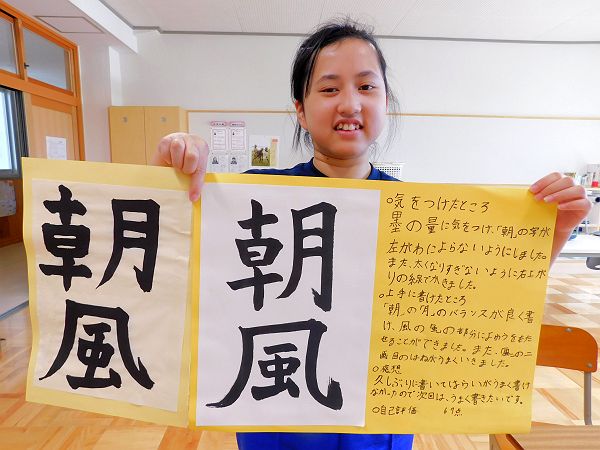 朝
風
朝
風
○気をつけたところ
墨の量に気をつけ、「朝」の字が
左がわによらないようにしました。
また、太くなりすぎないように右上が
りの線でかきました。
○上手に書けたところ
「朝」の「月」のバランスが良く書
け、風の虫の部分によゆうをもた
せることができました。また、風の二
画目のはねがうまくいきました。
○感想
久しぶりに書いてはらいがうまく書け
なかったので次回は、うまく書きたいです。
○自己評価 67点